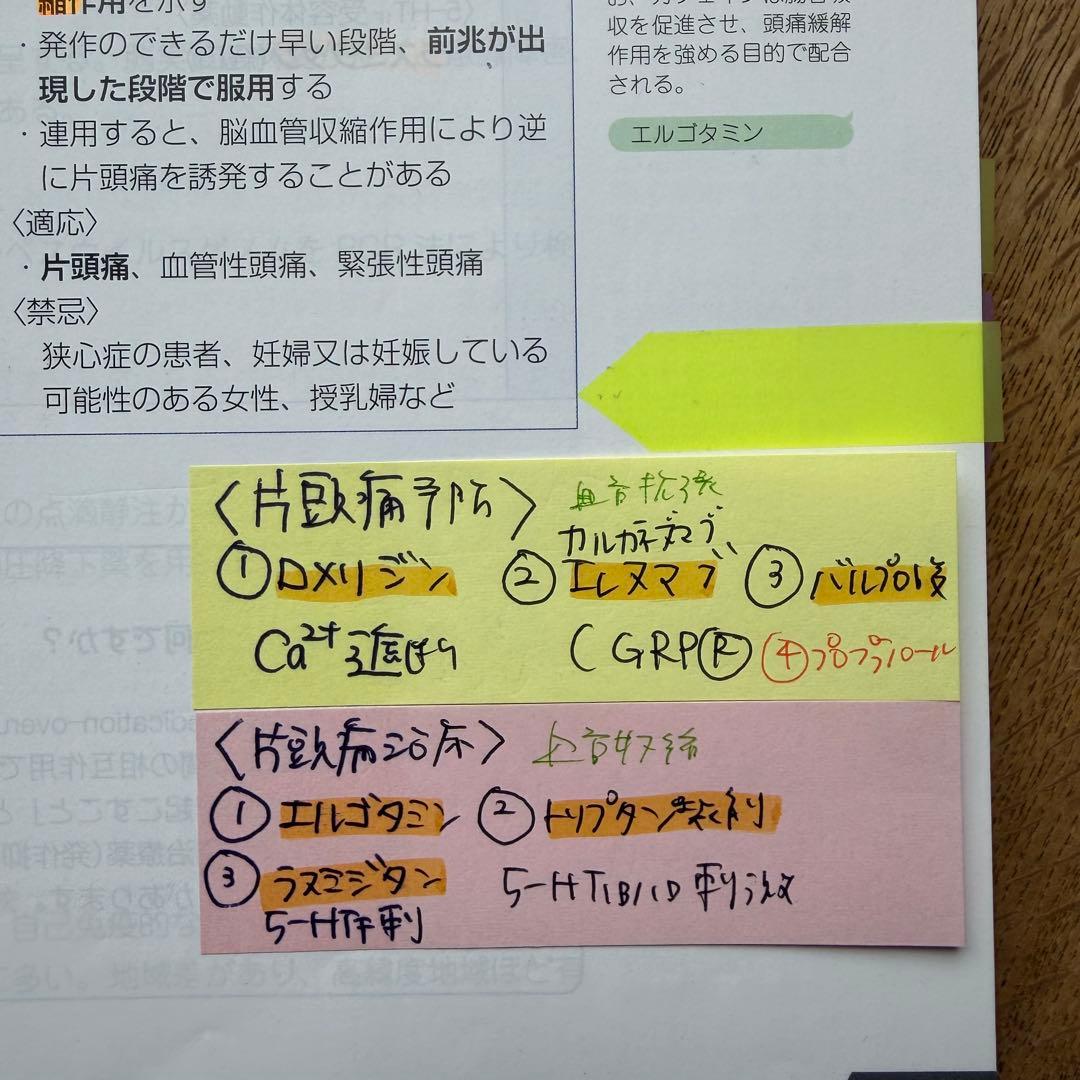 縮作用を示す
・発作のできるだけ早い段階、前兆が出
現した段階で服用する
・連用すると、脳血管収縮作用により逆
に片頭痛を誘発することがある
〈適応〉
・片頭痛、血管性頭痛、緊張性頭痛
〈禁忌〉
狭心症の患者、妊婦又は妊娠している
可能性のある女性、授乳婦など
収を促進させ、頭痛緩解
作用を強める目的で配合
される。
エルゴタミン
〈片頭痛予防〉
血管拡張
①ロメリジン
カルカネズマブ
②エレヌマブ
③バルプロ酸
Ca²⁺
CGRPⓇ
④プロプラノロール
〈片頭痛治療〉
血管収縮
①エルゴタミン
②トリプタン製剤
③ラスミジタン
5-HT1B/1D 刺激
5-HT1F刺